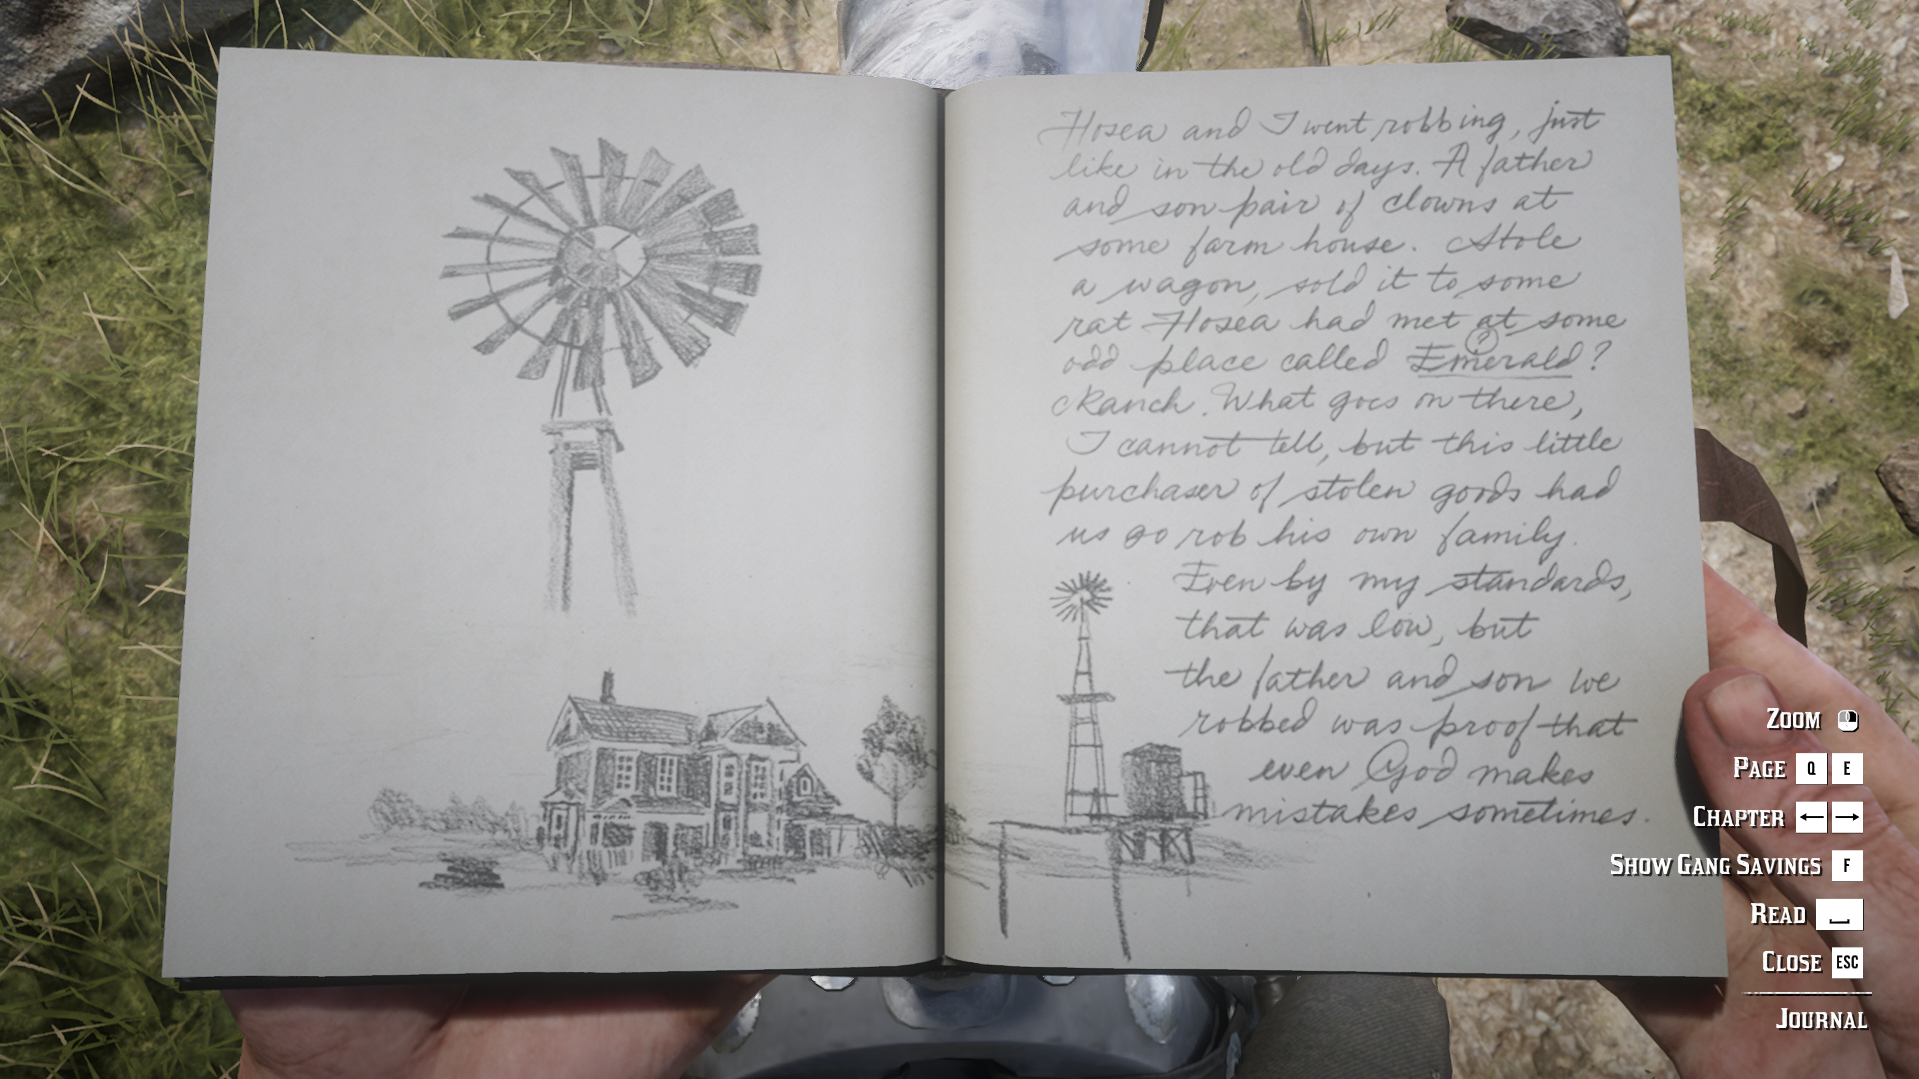 Hosea and I went robbing, just
like in the old days. A father
and son pair of clowns at
some farm house. Stole
a wagon, sold it to some
rat Hosea had met at some
odd place called Emerald?
(?)
Ranch. What goes on there,
I cannot tell, but this little
purchaser of stolen goods had
us go rob his own family.
Even by my standards,
that was low, but
the father and son we
robbed was proof that
even God makes
mistakes sometimes.
ZOOM
PAGE Q E
CHAPTER ← →
SHOW GANG SAVINGS F
READ
CLOSE ESC
JOURNAL